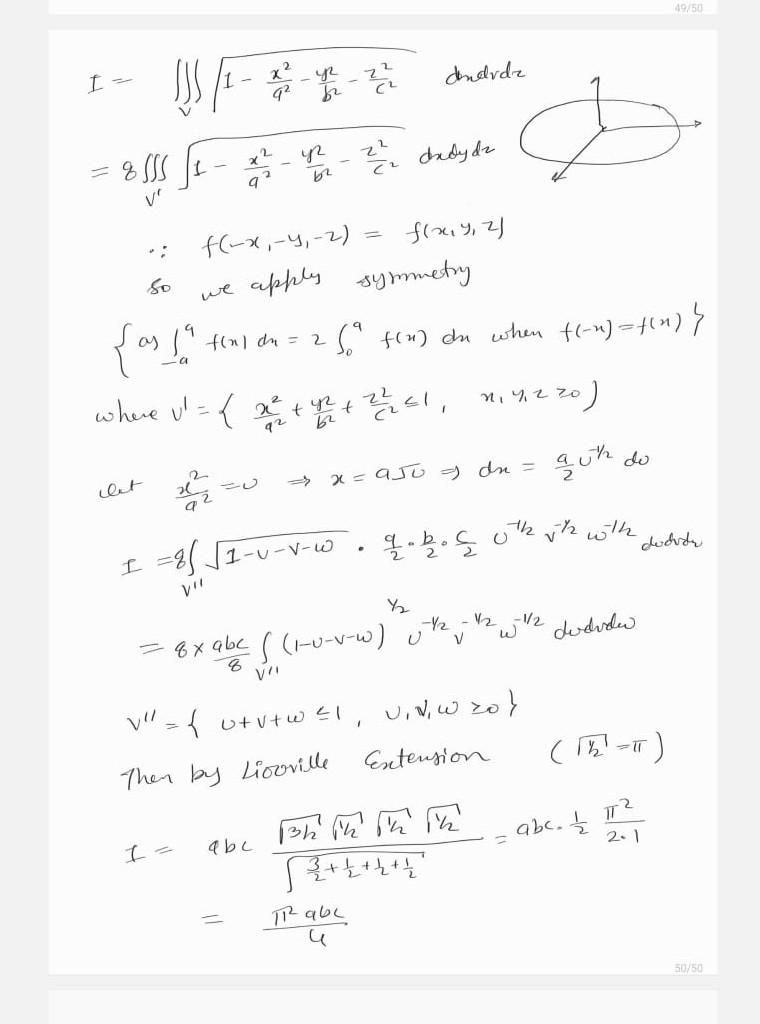 49/50
I = ∭_V √(1 - x²/a² - y²/b² - z²/c²) dxdydz
= 8 ∭_V' √(1 - x²/a² - y²/b² - z²/c²) dxdydz
∵ f(-x, -y, -z) = f(x, y, z)
so we apply symmetry
{ as ∫_{-a}^{a} f(x) dx = 2 ∫_0^a f(x) dx when f(-x) = f(x) }
where V' = { x²/a² + y²/b² + z²/c² ≤ 1, x, y, z ≥ 0 )
let x²/a² = u ⇒ x = a√u ⇒ dx = a/2 u^{-1/2} du
I = 8∫_V'' √(1-u-v-w) · a/2 · b/2 · c/2 u^{-1/2} v^{-1/2} w^{-1/2} dudvdz
= 8 × abc/8 ∫_V'' (1-u-v-w)^{1/2} u^{-1/2} v^{-1/2} w^{-1/2} dudvdw
V'' = { u+v+w ≤ 1, u, v, w ≥ 0 }
Then by Liooville Extension (Γ1/2 = π)
I = abc (Γ3/2 Γ1/2 Γ1/2 Γ1/2) / Γ(3/2 + 1/2 + 1/2 + 1/2) = abc · 1/2 π²/2·1
= π² abc/4
50/50